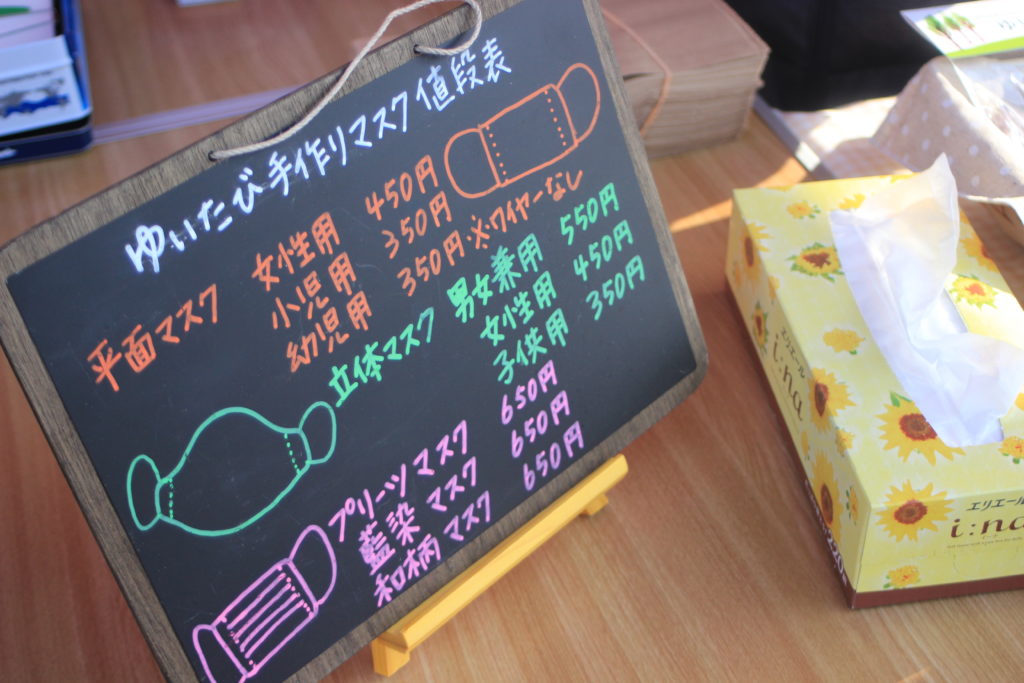 ゆいたび手作りマスク値段表
平面マスク 女性用 450円
小児用 350円
幼児用 350円 ※ワイヤーなし
立体マスク 男女兼用 550円
女性用 450円
子供用 350円
プリーツマスク 650円
藍染マスク 650円
和柄マスク 650円
エリエール
i:na
エリエール
i:na